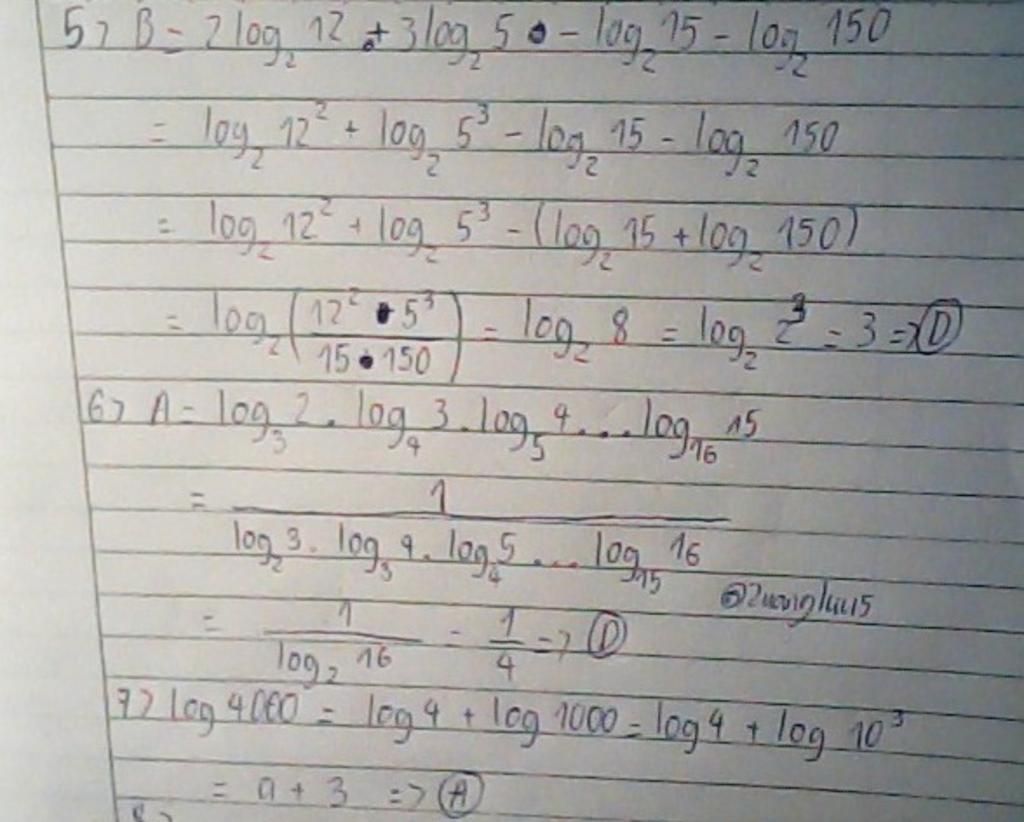 5> B = 2log₂ 12 + 3log₂ 5 - log₂ 15 - log₂ 150
= log₂ 12² + log₂ 5³ - log₂ 15 - log₂ 150
= log₂ 12² + log₂ 5³ - (log₂ 15 + log₂ 150)
= log₂ (12² • 5³ / 15 • 150) = log₂ 8 = log₂ 2³ = 3 => Ⓓ
6> A = log₃ 2 . log₄ 3 . log₅ 4 ... log₁₆ 15
= 1 / log₂ 3 . log₃ 4 . log₄ 5 ... log₁₅ 16
= 1 / log₂ 16 = 1/4 => Ⓓ
7> log 4000 = log 4 + log 1000 = log 4 + log 10³
= a + 3 => Ⓐ
8>